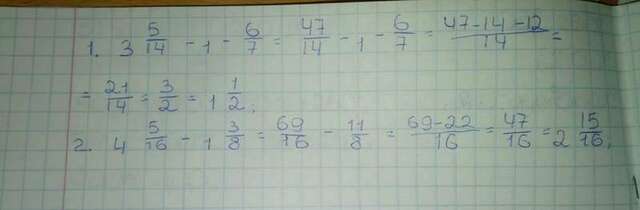 1. 3 5/14 - 1 - 6/7 = 47/14 - 1 - 6/7 = 47-14-12/14 =
= 21/14 = 3/2 = 1 1/2.
2. 4 5/16 - 1 3/8 = 69/16 - 11/8 = 69-22/16 = 47/16 = 2 15/16.